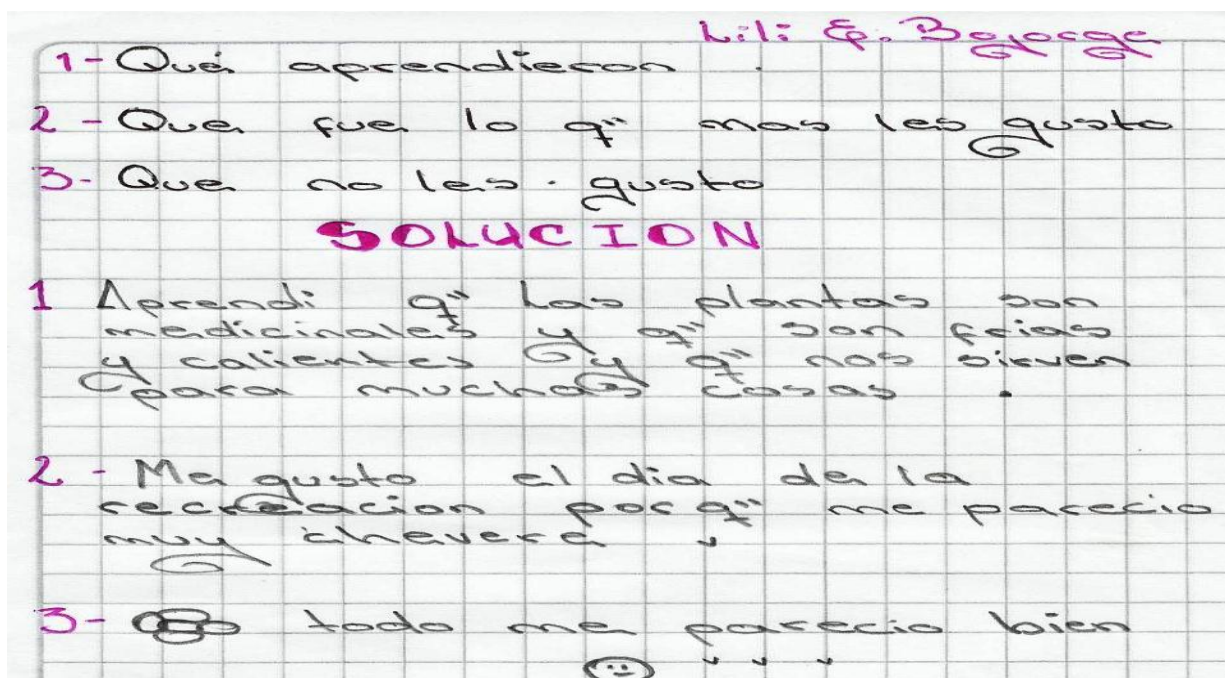 Lili E. Bojorge
1- Qué aprendieron .
2 - Que fue lo q" mas les gusto
3- Que no les. gusto
SOLUCION
1 Aprendi q" Las plantas son
medicinales y q" son frias
y calientes y q" nos sirven
para muchas cosas .
2 - Me gusto el dia de la
recreacion porq" me parecio
muy chevere
3- todo me parecio bien